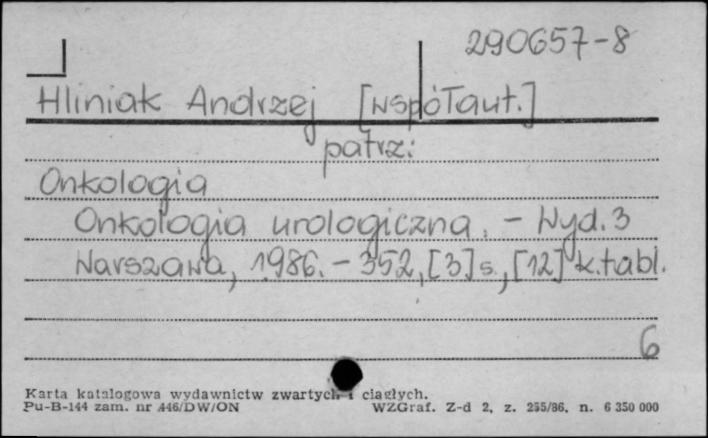 290657-8
Hliniak Andrzej [współaut.]
patrz:
Onkologia
Onkologia urologiczna. - Wyd. 3
Warszawa, 1986. - 352, [3] s., [12] k. tabl.
6
Karta katalogowa wydawnictw zwartych i ciągłych.
Pu-B-144 zam. nr 446/DW/ON WZGraf. Z-d 2, z. 255/86, n. 6 350 000